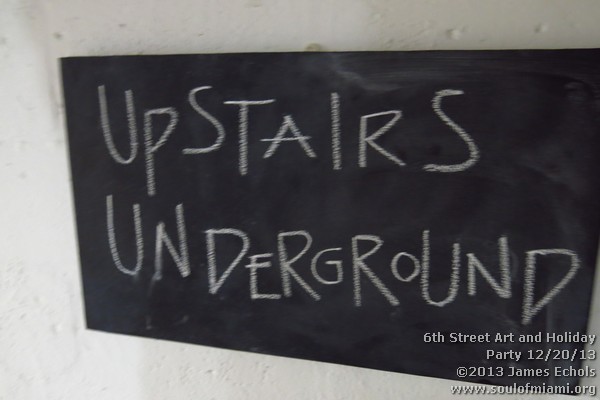 UpSTAIRS
UNDERGROUND
6th Street Art and Holiday
Party 12/20/13
©2013 James Echols
www.soulofmiami.org